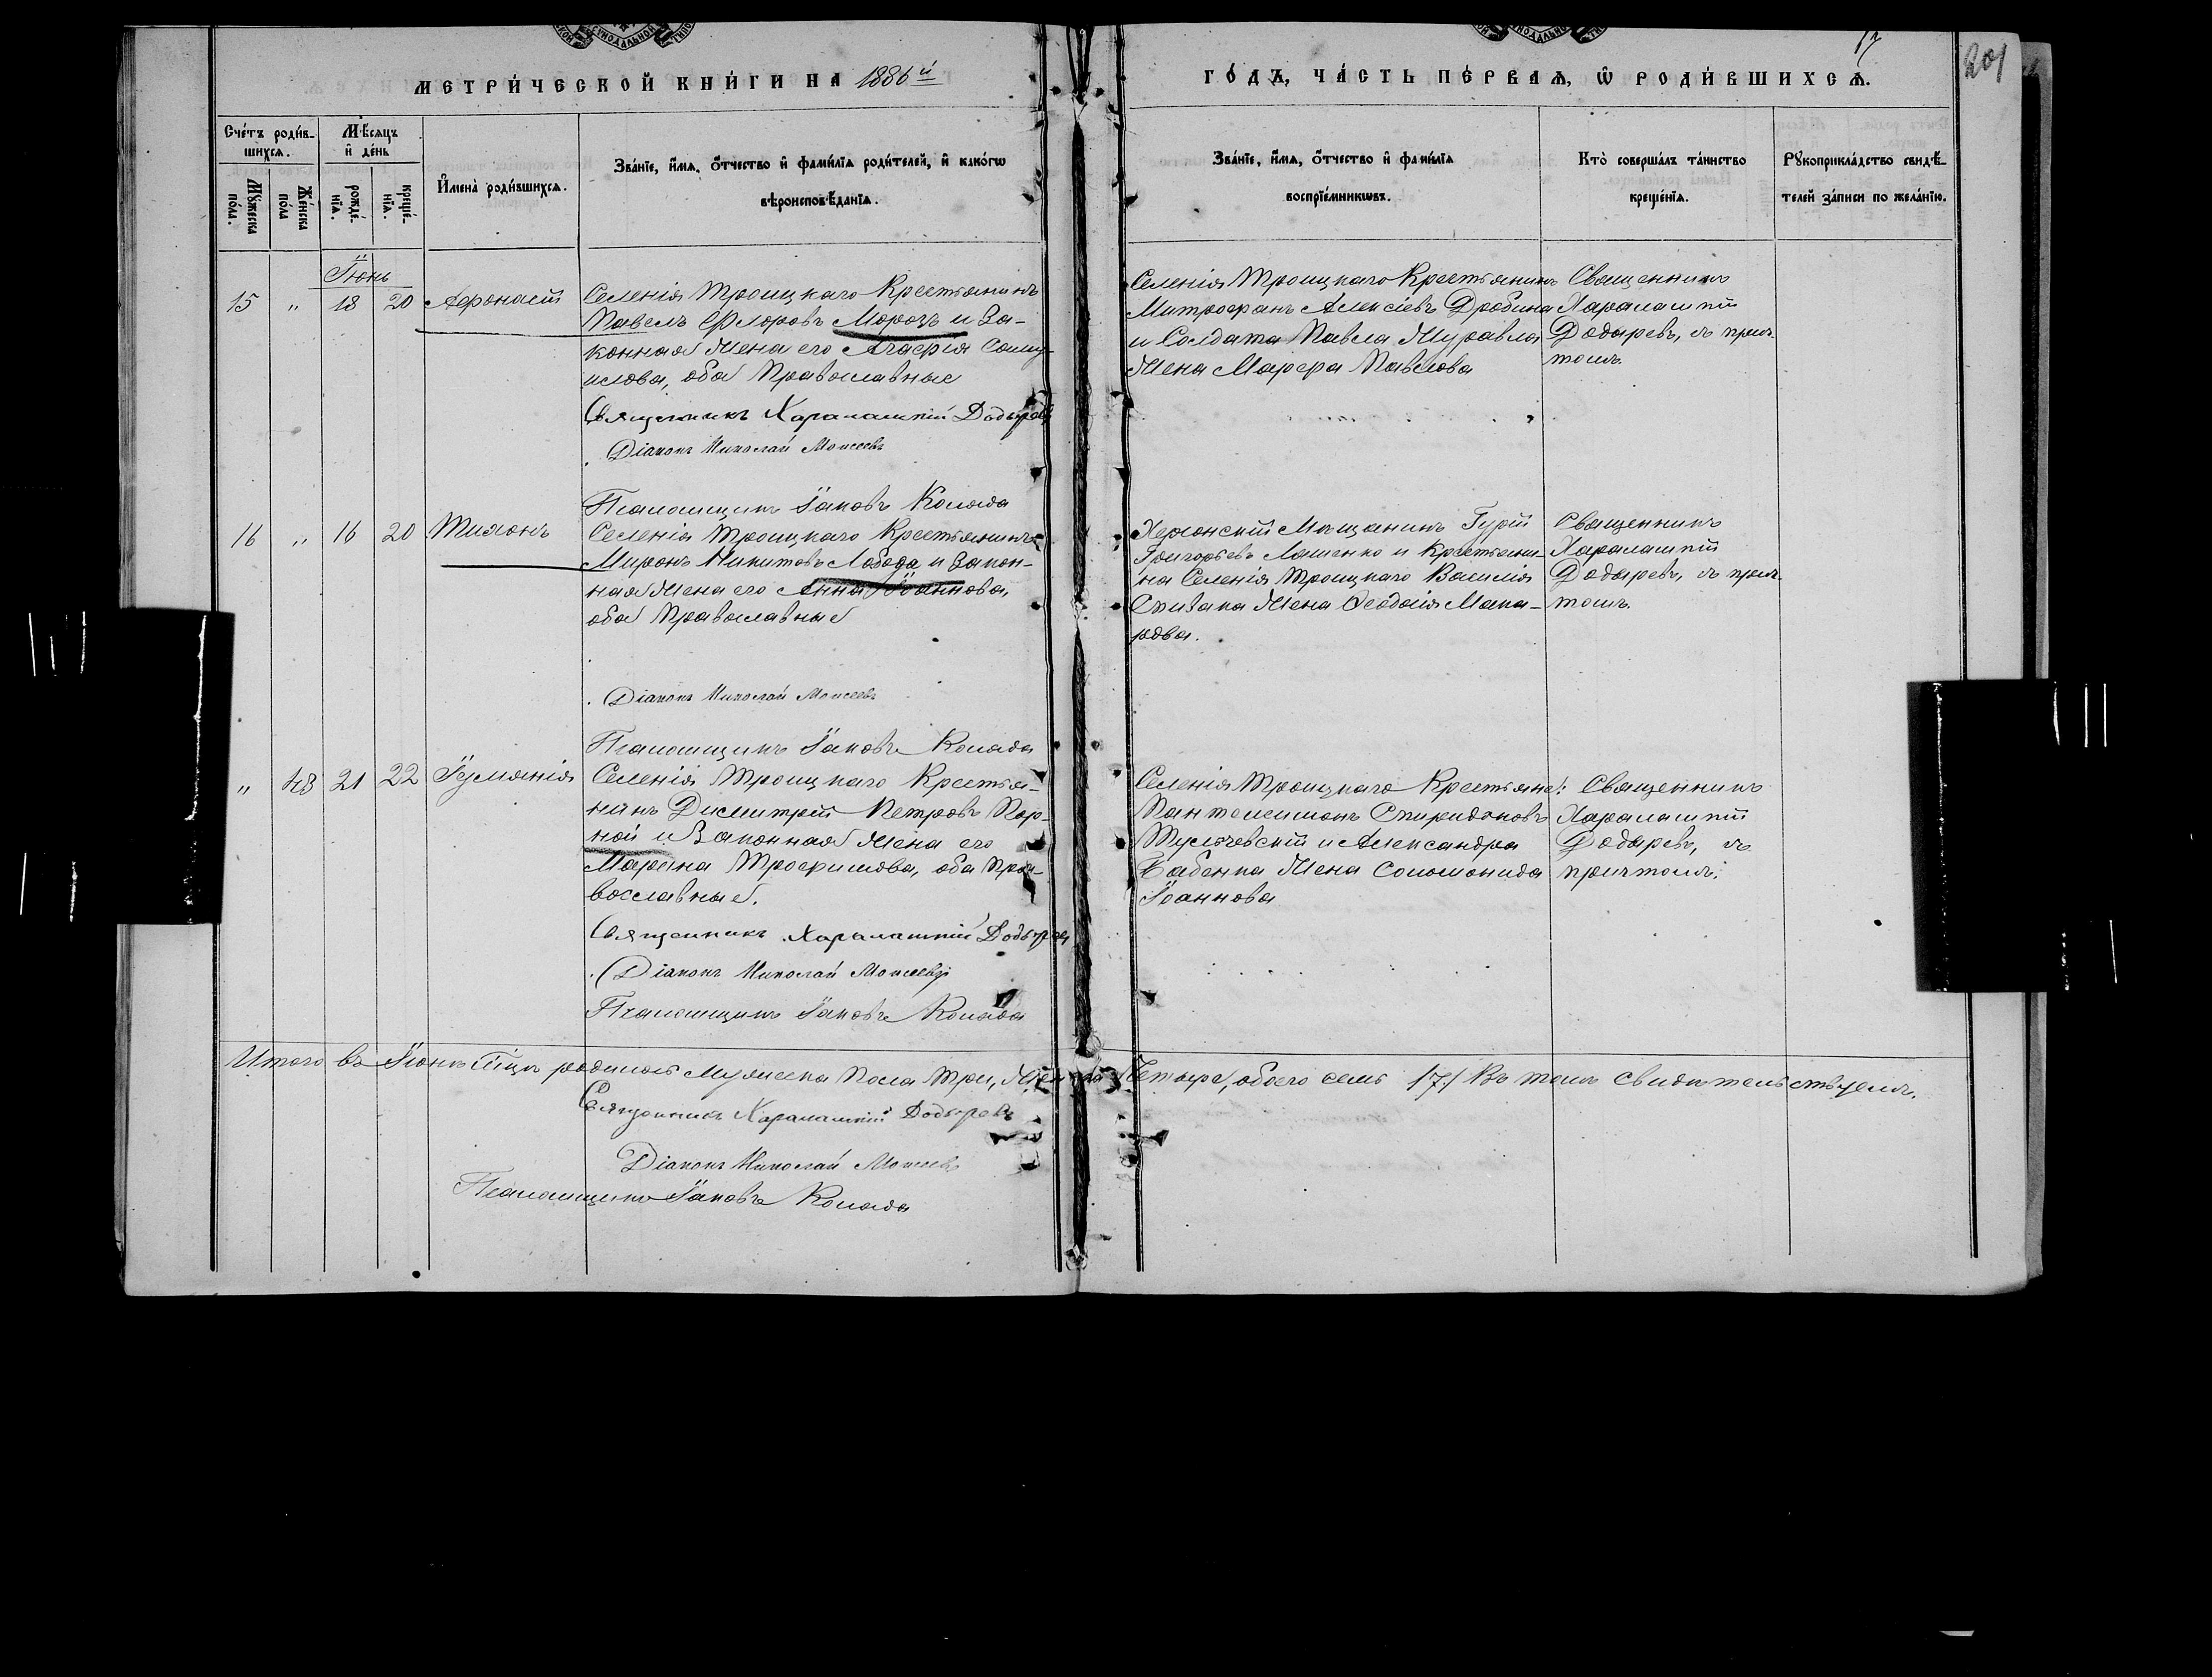 МЕТРИЧЕСКОЙ КНИГИ НА 1886й
ГОДЪ, ЧАСТЬ ПЕРВАЯ, Ѡ РОДИВШИХСЯ.
17
201
Счетъ родив-
шихся.
Мѣсяцъ
и день
Мꙋжеска
пола.
Женска
пола
рожде-
нїя.
креще-
нїя.
Имена родившихся.
Званїе, имя, отчество и фамилїя родителей, и какогѡ
вѣроисповѣданїя.
Званїе, имя, отчество и фамилїя
воспрїемникѡвъ.
Кто совершалъ таинство
крещенїя.
Рꙋкоприкладство свидѣ-
телей записи по желанїю.
Іюнь
15 " 18 20 Афонасій
Селенія Троицкаго Крестьянинъ
Павелъ Флоровъ Морозъ и За-
конная Жена его Агафія Саму-
илова, оба Православные
Священникъ Харалампій Додыревъ
Діаконъ Николай Моисеевъ
Псаломщикъ Іаковъ Коляда
Селенія Троицкаго Крестьянинъ
Митрофанъ Алексіевъ Дробина
и Солдата Павла Журавля
Жена Марфа Павлова
Священникъ
Харалампій
Додыревъ, съ прич-
томъ.
16 " 16 20 Тихонъ
Селенія Троицкаго Крестьянинъ
Миронъ Никитовъ Лобода и Закон-
ная Жена его Анна Іоаннова,
оба Православные
Діаконъ Николай Моисеевъ
Псаломщикъ Іаковъ Коляда
Херсонскій Мѣщанинъ Гурій
Григорьевъ Ляшенко и Крестьяни-
на Селенія Троицкаго Василія
Спивака Жена Ѳеодосія Мака-
рова.
Священникъ
Харалампій
Додыревъ, съ прич-
томъ.
" 48 21 22 Іуліанія
Селенія Троицкаго Крестья-
нинъ Димитрій Петровъ Пор-
ной и Законная Жена его
Марина Трофимова, оба Пра-
вославные.
Священникъ Харалампій Додыревъ
Діаконъ Николай Моисеевъ
Псаломщикъ Іаковъ Коляда
Селенія Троицкаго Крестьяне:
Пантелеимонъ Спиридоновъ
и Александра
Бабенка Жена Соломонида
Іоаннова
Священникъ
Харалампій
Додыревъ, съ
причтомъ.
Итого въ Іюнѣ м-цѣ родилось Мужеска Пола три, Женска Четыре, обоего семь /7/ Въ томъ свидѣтельствуемъ.
Священникъ Харалампій Додыревъ
Діаконъ Николай Моисеевъ
Псаломщикъ Іаковъ Коляда